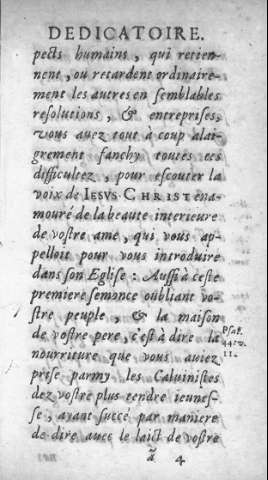 DEDICATOIRE.
pects humains, qui retien-
nent, ou retardent ordinaire-
ment les autres en semblables
resolutions, & entreprises,
vous auez tout à coup alai-
grement franchy toutes ces
difficultez, pour escouter la
voix de IESVS-CHRIST ena-
mouré de la beauté interieure
de vostre ame, qui vous ap-
pelloit pour vous introduire
dans son Eglise: Aussi à ceste
premiere semonce oubliant vo-
stre peuple, & la maison
de vostre pere, c'est à dire la
nourriture que vous auiez
prise parmy les Caluinistes
dez vostre plus tendre ieunes-
se, ayant succé par maniere
de dire auec le laict de vostre
Psal.
44. v.
11.
ã 4